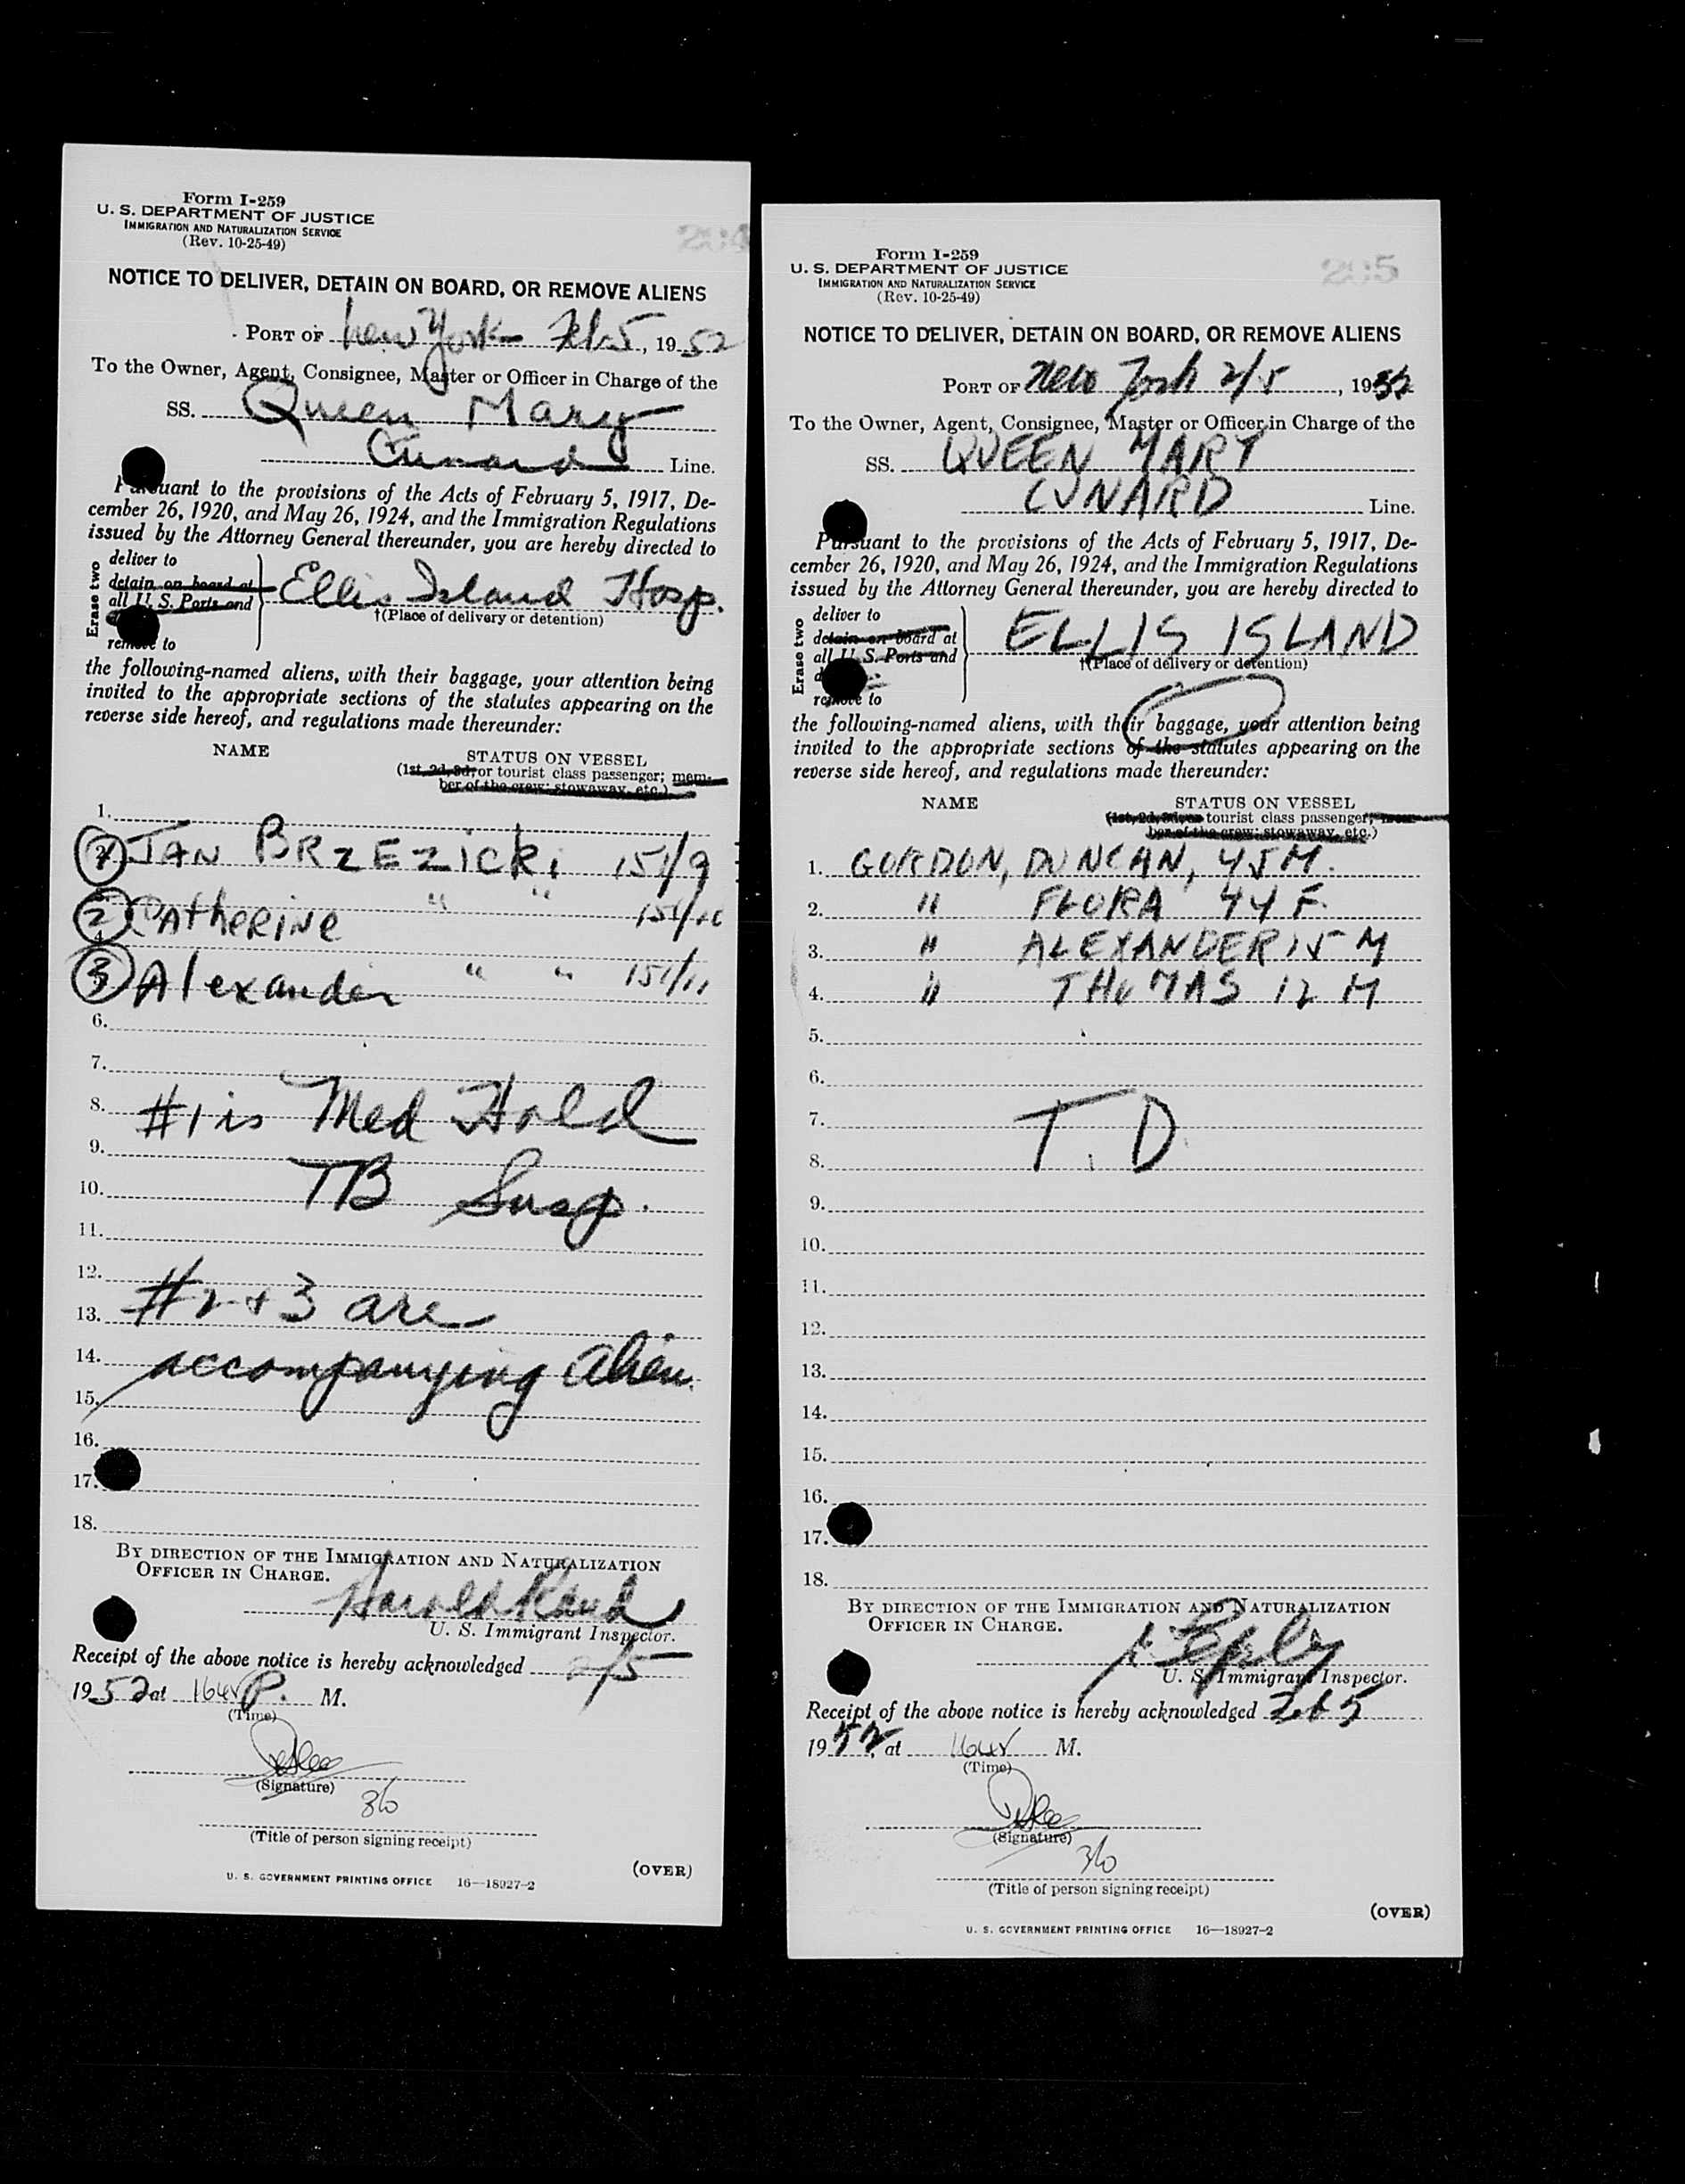 Form I-259
U. S. DEPARTMENT OF JUSTICE
IMMIGRATION AND NATURALIZATION SERVICE
(Rev. 10-25-49)
NOTICE TO DELIVER, DETAIN ON BOARD, OR REMOVE ALIENS
PORT OF New York Feb 5, 1952
To the Owner, Agent, Consignee, Master or Officer in Charge of the
SS. Queen Mary
Cunard Line.
Pursuant to the provisions of the Acts of February 5, 1917, De-
cember 26, 1920, and May 26, 1924, and the Immigration Regulations
issued by the Attorney General thereunder, you are hereby directed to
Erase two
deliver to
detain on board at
all U. S. Ports and
remove to
Ellis Island Hosp.
†(Place of delivery or detention)
the following-named aliens, with their baggage, your attention being
invited to the appropriate sections of the statutes appearing on the
reverse side hereof, and regulations made thereunder:
NAME STATUS ON VESSEL
(1st, 2d, 3d, or tourist class passenger; mem-
ber of the crew; stowaway, etc.)
1.
1 JAN BRZEZICKi 151/9
2 CAtheRiNe " " 151/10
3 Alexander " " 151/11
6.
7.
8. #1 is Med Hold
9.
10. TB Susp.
11.
12.
13. #2 + 3 are
14. accompanying alien.
15.
16.
17.
18.
BY DIRECTION OF THE IMMIGRATION AND NATURALIZATION
OFFICER IN CHARGE.
Harold
U. S. Immigrant Inspector.
Receipt of the above notice is hereby acknowledged 2/5
1952 at P. M.
(Time)
(Signature)
(Title of person signing receipt)
(OVER)
U. S. GOVERNMENT PRINTING OFFICE 16—18927-2
205
Form I-259
U. S. DEPARTMENT OF JUSTICE
IMMIGRATION AND NATURALIZATION SERVICE
(Rev. 10-25-49)
NOTICE TO DELIVER, DETAIN ON BOARD, OR REMOVE ALIENS
PORT OF New York 2/5, 1952
To the Owner, Agent, Consignee, Master or Officer in Charge of the
SS. QUEEN MARY
CUNARD Line.
Pursuant to the provisions of the Acts of February 5, 1917, De-
cember 26, 1920, and May 26, 1924, and the Immigration Regulations
issued by the Attorney General thereunder, you are hereby directed to
Erase two
deliver to
detain on board at
all U. S. Ports and
remove to
ELLIS ISLAND
†(Place of delivery or detention)
the following-named aliens, with their baggage, your attention being
invited to the appropriate sections of the statutes appearing on the
reverse side hereof, and regulations made thereunder:
NAME STATUS ON VESSEL
(1st, 2d, 3d, or tourist class passenger; mem-
ber of the crew; stowaway, etc.)
1. GORDON, DUNCAN, 45 M.
2. " FLORA 44 F.
3. " ALEXANDER 15 M
4. " THOMAS 12 M
5.
6.
7. T. D.
8.
9.
10.
11.
12.
13.
14.
15.
16.
17.
18.
BY DIRECTION OF THE IMMIGRATION AND NATURALIZATION
OFFICER IN CHARGE.
U. S. Immigrant Inspector.
Receipt of the above notice is hereby acknowledged Feb 5
1952, at M.
(Time)
(Signature)
(Title of person signing receipt)
(OVER)
U. S. GOVERNMENT PRINTING OFFICE 16—18927-2